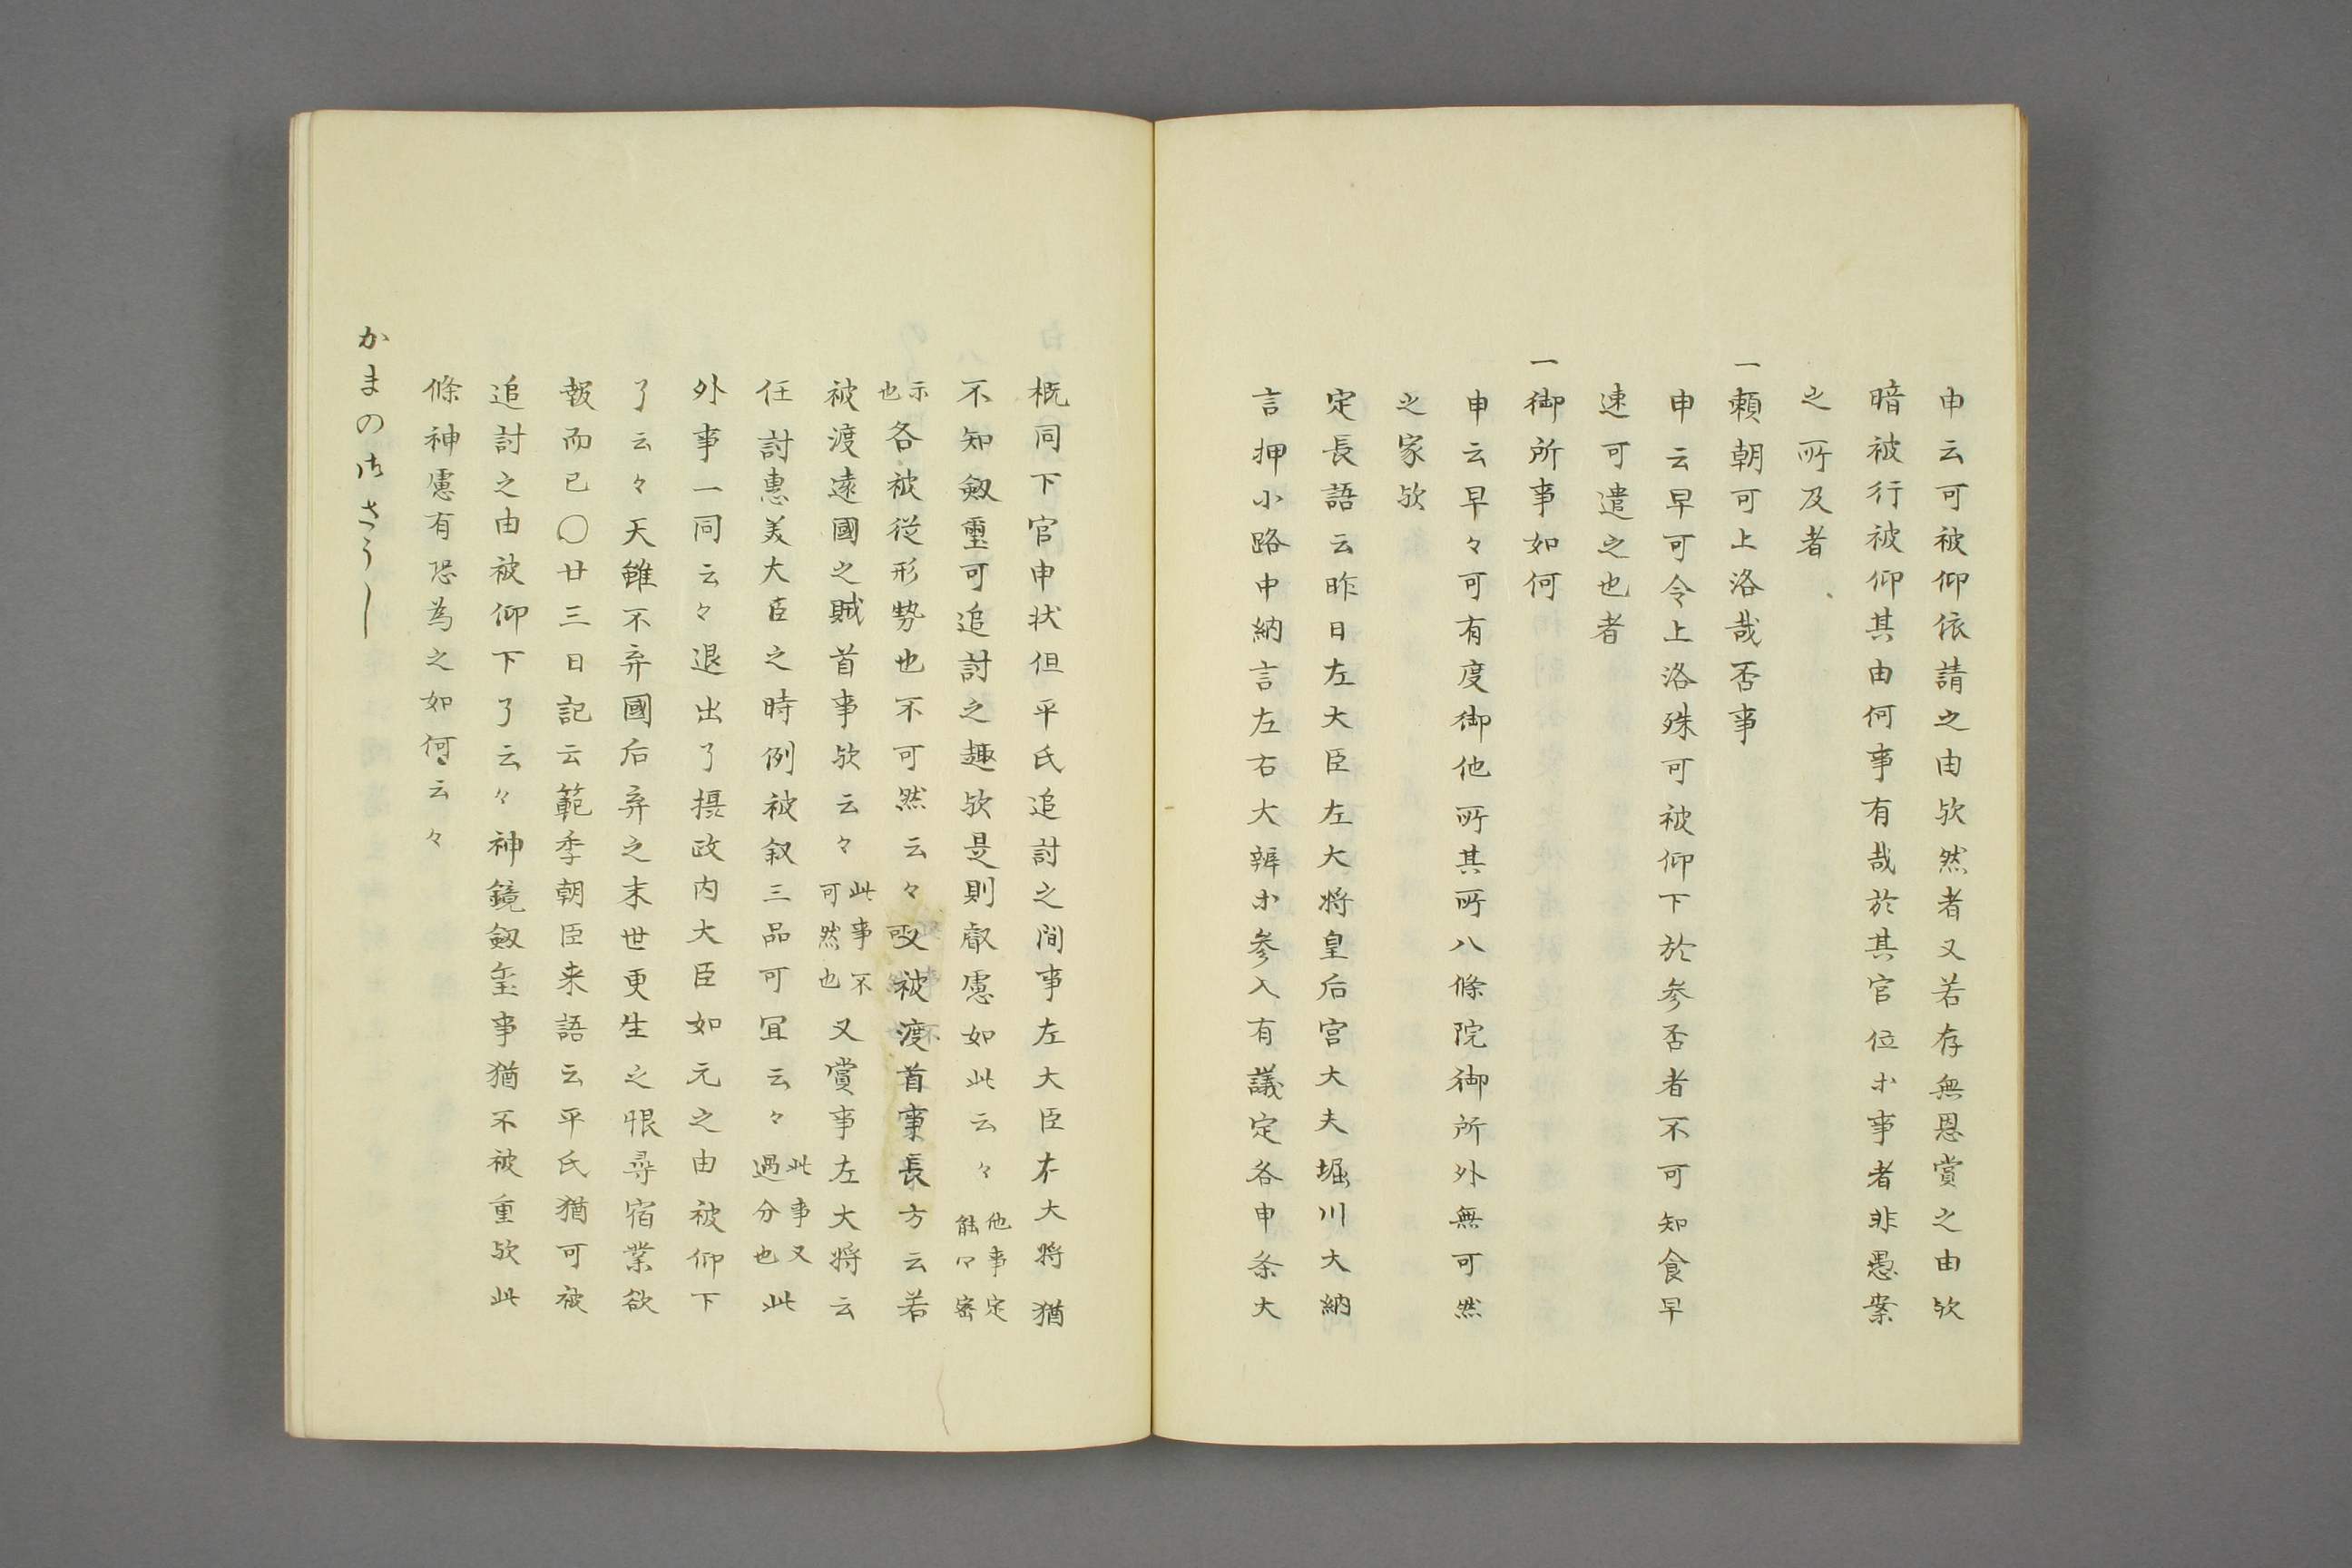 申云可被仰依請之由欤然者又若存無恩賞之由欤
暗被行被仰其由何事有哉於其官位ホ事者非愚案
之所及者
一頼朝可上洛哉否事
申云早可令上洛殊可被仰下於参否者不可知食早
速可遣之也者
一御所事如何
申云早々可有度御他所其所八條院御所外無可然
之家欤
定長語云昨日左大臣左大将皇后宮大夫堀川大納
言押小路中納言左右大辨ホ参入有議定各申条大
概同下官申状但平氏追討之間事左大臣ホ大将猶
不知劔璽可追討之趣欤是則叡慮如此云々他事定能々密
示也各被従形勢也不可然云々又被渡首事長方云若
被渡遠國之賊首事欤云々此事不可然也又賞事左大将云
任討恵美大臣之時例被叙三品可冝云々此事又過分也此
外事一同云々退出了摂政内大臣如元之由被仰下
了云々天雖不弃國后弃之末世更生之恨尋宿業欲
報而已〇廿三日記云範季朝臣来語云平氏猶可被
追討之由被仰下了云々神鏡劔璽事猶不被重欤此
條神慮有恐為之如何云々
かまの御さうし